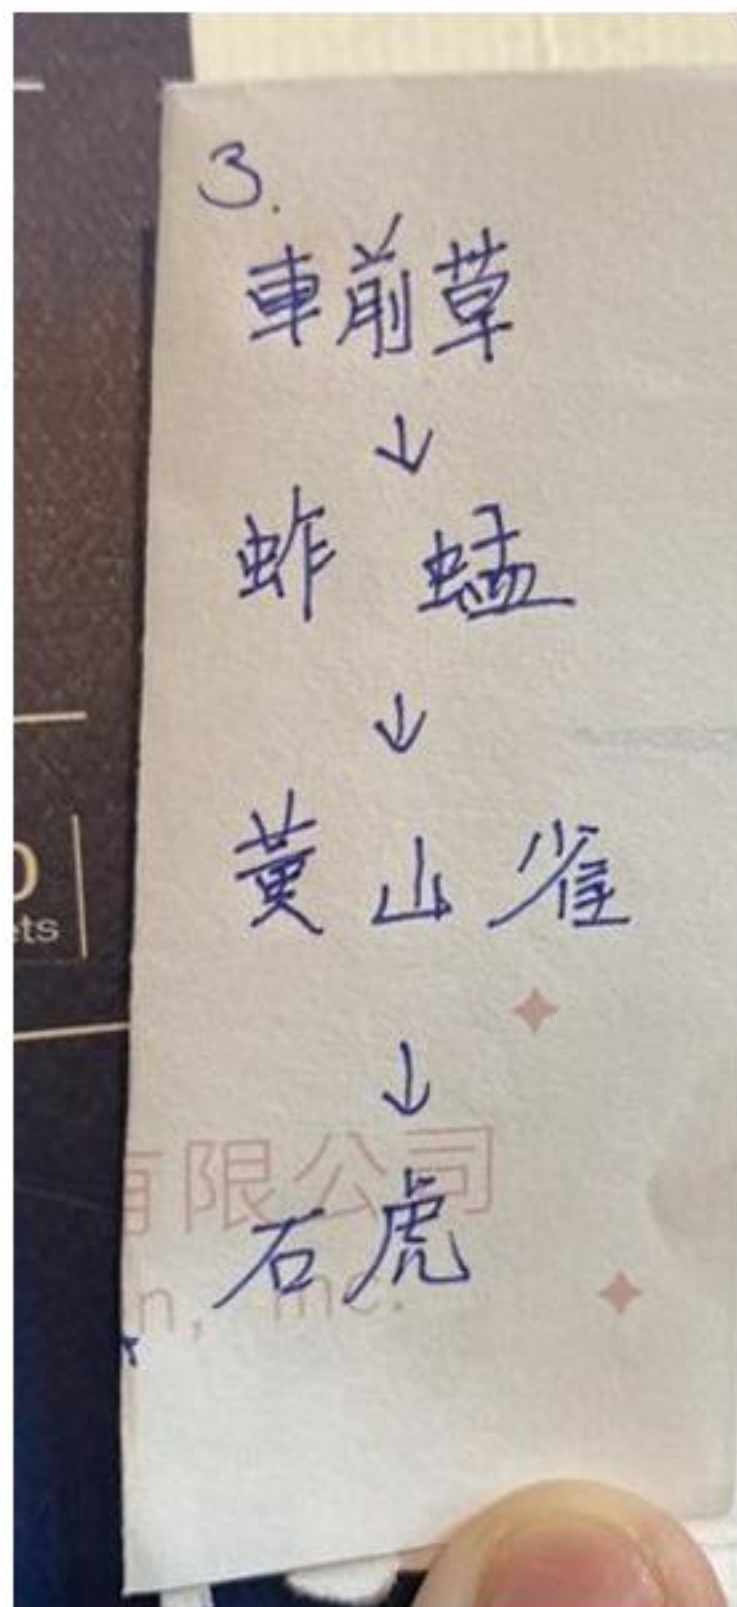 3.
車前草
↓
蚱蜢
↓
黃山雀
↓
石虎
有限公司
n, Inc.
ets